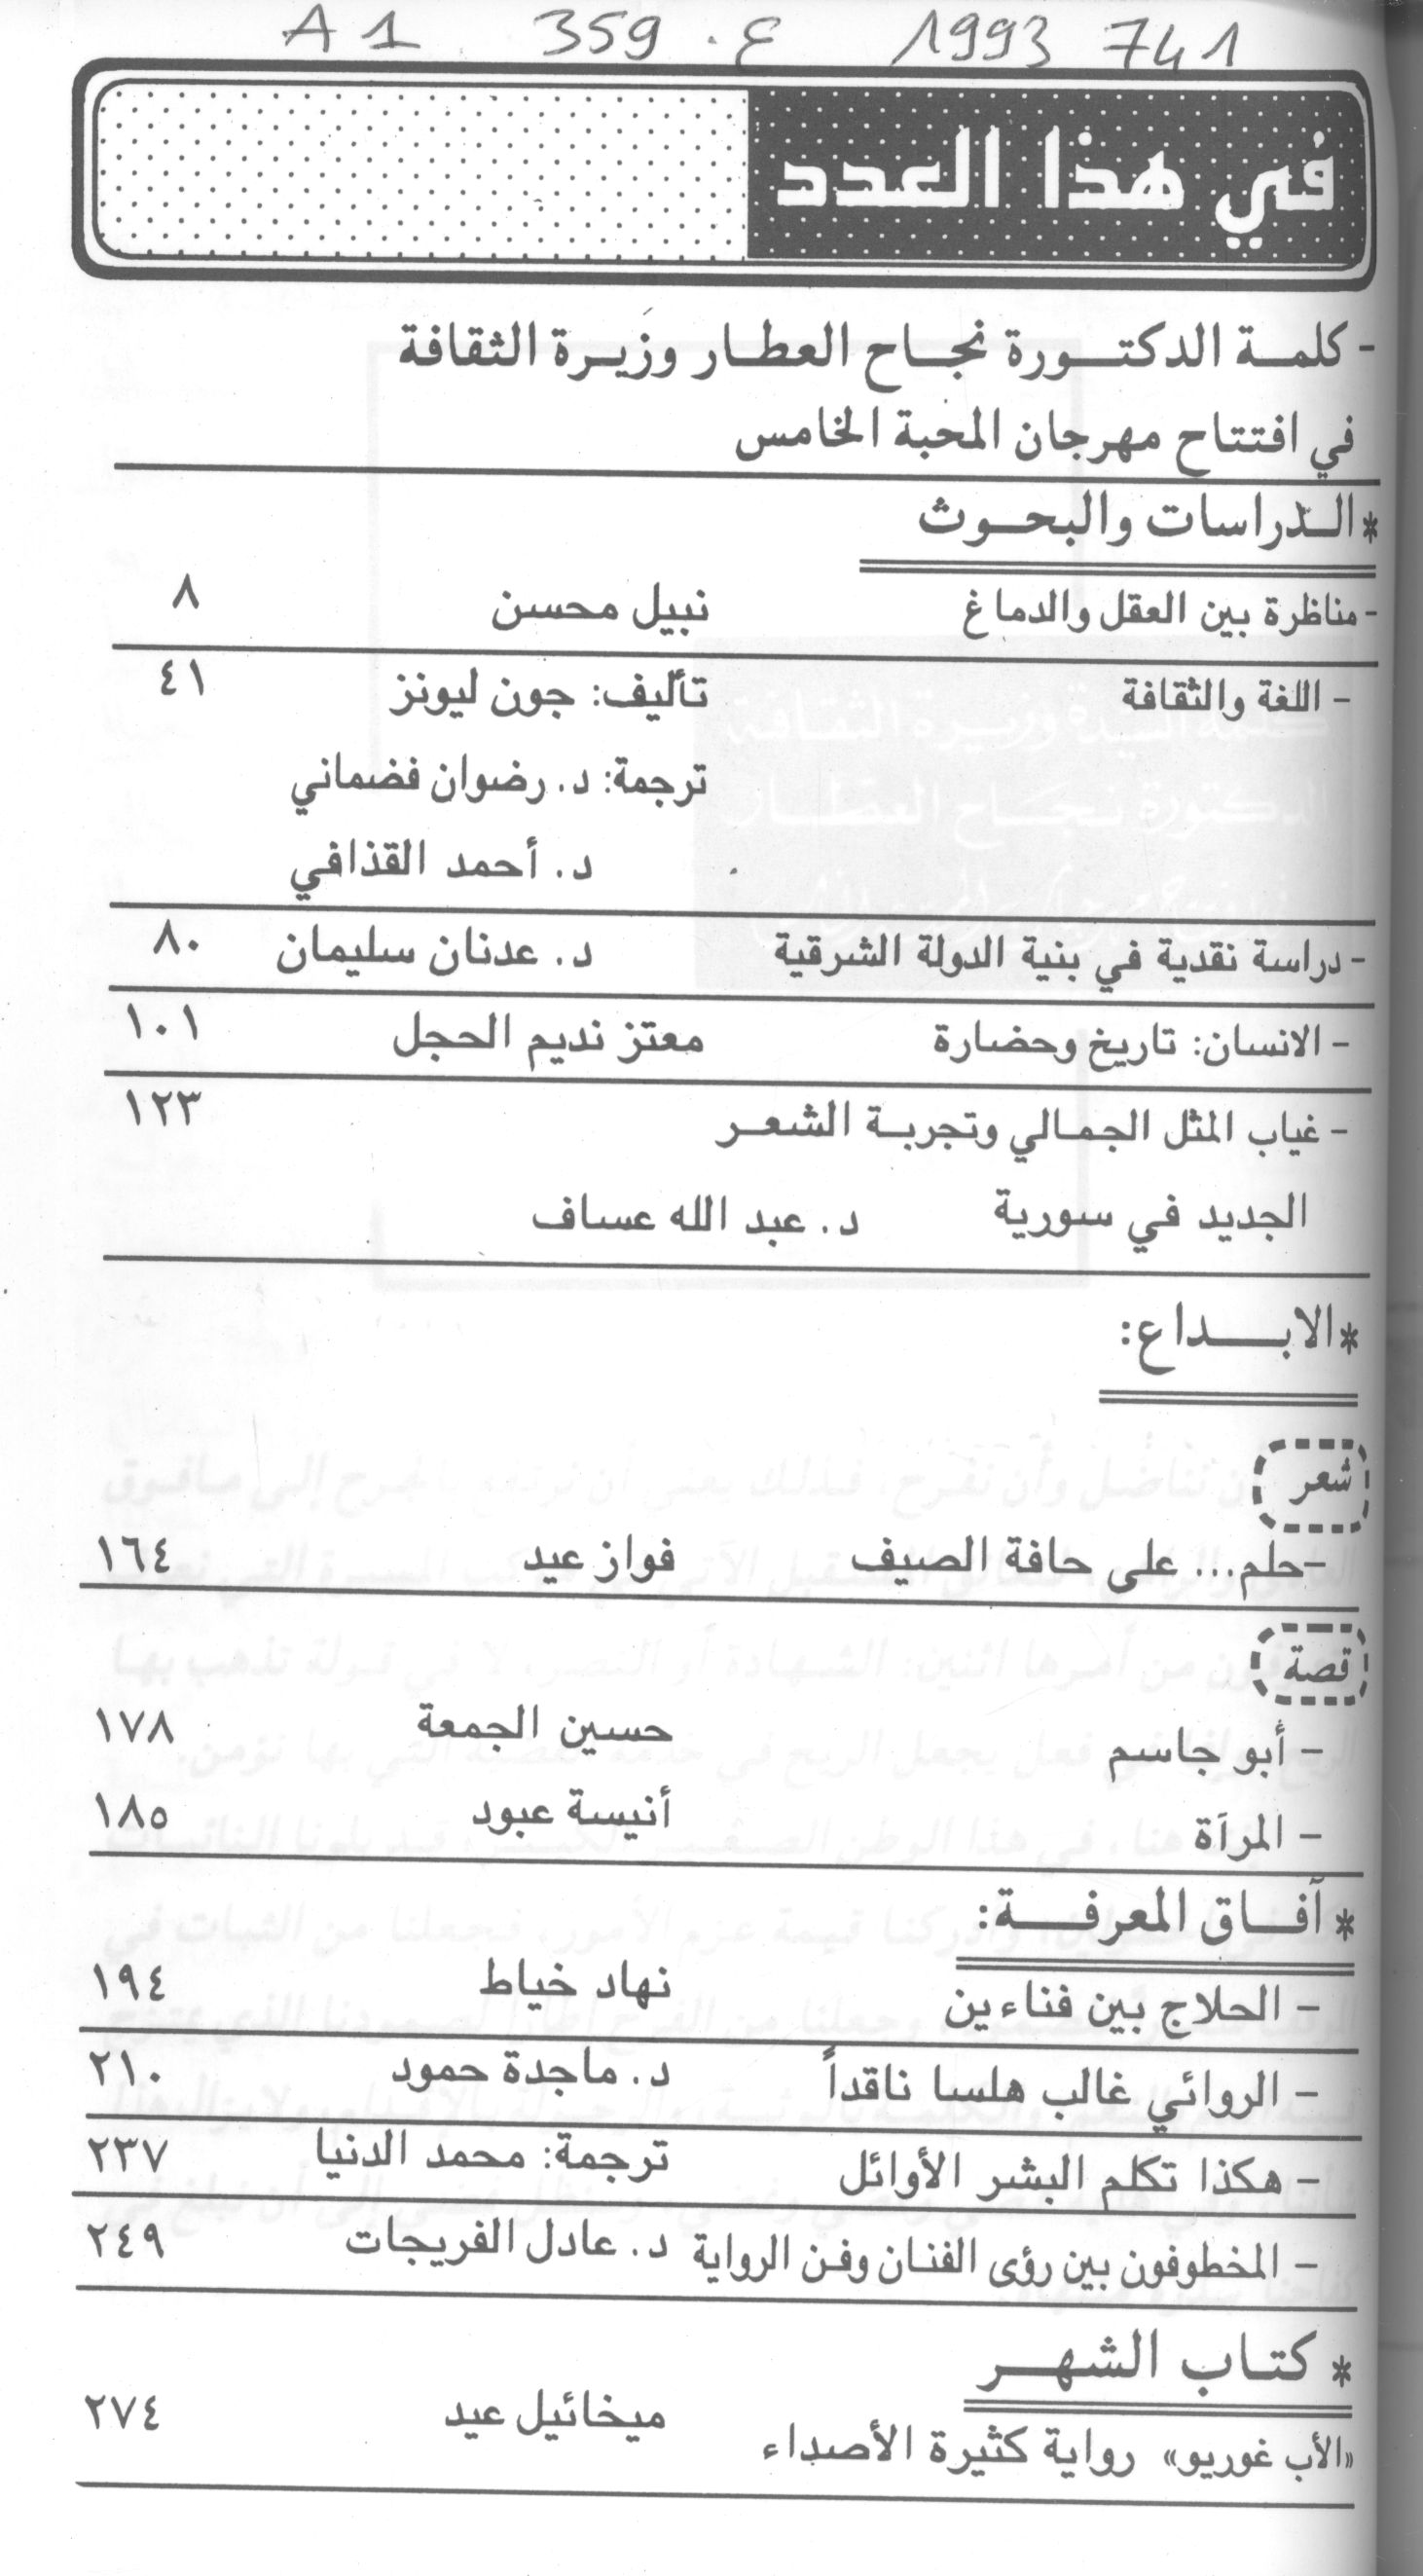 A1 359 . ع 1993 741
في هذا العدد
- كلمــة الدكتــورة نجــاح العطــار وزيــرة الثقافة
في افتتاح مهرجان المحبة الخامس
* الــدراسات والبحــوث
- مناظرة بين العقل والدماغ نبيل محسن ٨
- اللغة والثقافة تأليف: جون ليونز ٤١
ترجمة: د. رضوان فضماني
د. أحمد القذافي
- دراسة نقدية في بنية الدولة الشرقية د. عدنان سليمان ٨٠
- الانسان: تاريخ وحضارة معتز نديم الحجل ١٠١
- غياب المثل الجمـالي وتجربـة الشعـر ١٢٣
الجديد في سورية د. عبد الله عساف
* الابــــداع:
شعر
- حلم... على حافة الصيف فواز عيد ١٦٤
قصة
- أبو جاسم حسين الجمعة ١٧٨
- المرآة أنيسة عبود ١٨٥
* آفــاق المعرفــــة:
- الحلاج بين فناءين نهاد خياط ١٩٤
- الروائي غالب هلسا ناقداً د. ماجدة حمود ٢١٠
- هكذا تكلم البشر الأوائل ترجمة: محمد الدنيا ٢٣٧
- المخطوفون بين رؤى الفنـان وفـن الرواية د. عادل الفريجات ٢٤٩
* كتـاب الشهــر
«الأب غوريو» رواية كثيرة الأصداء ميخائيل عيد ٢٧٤